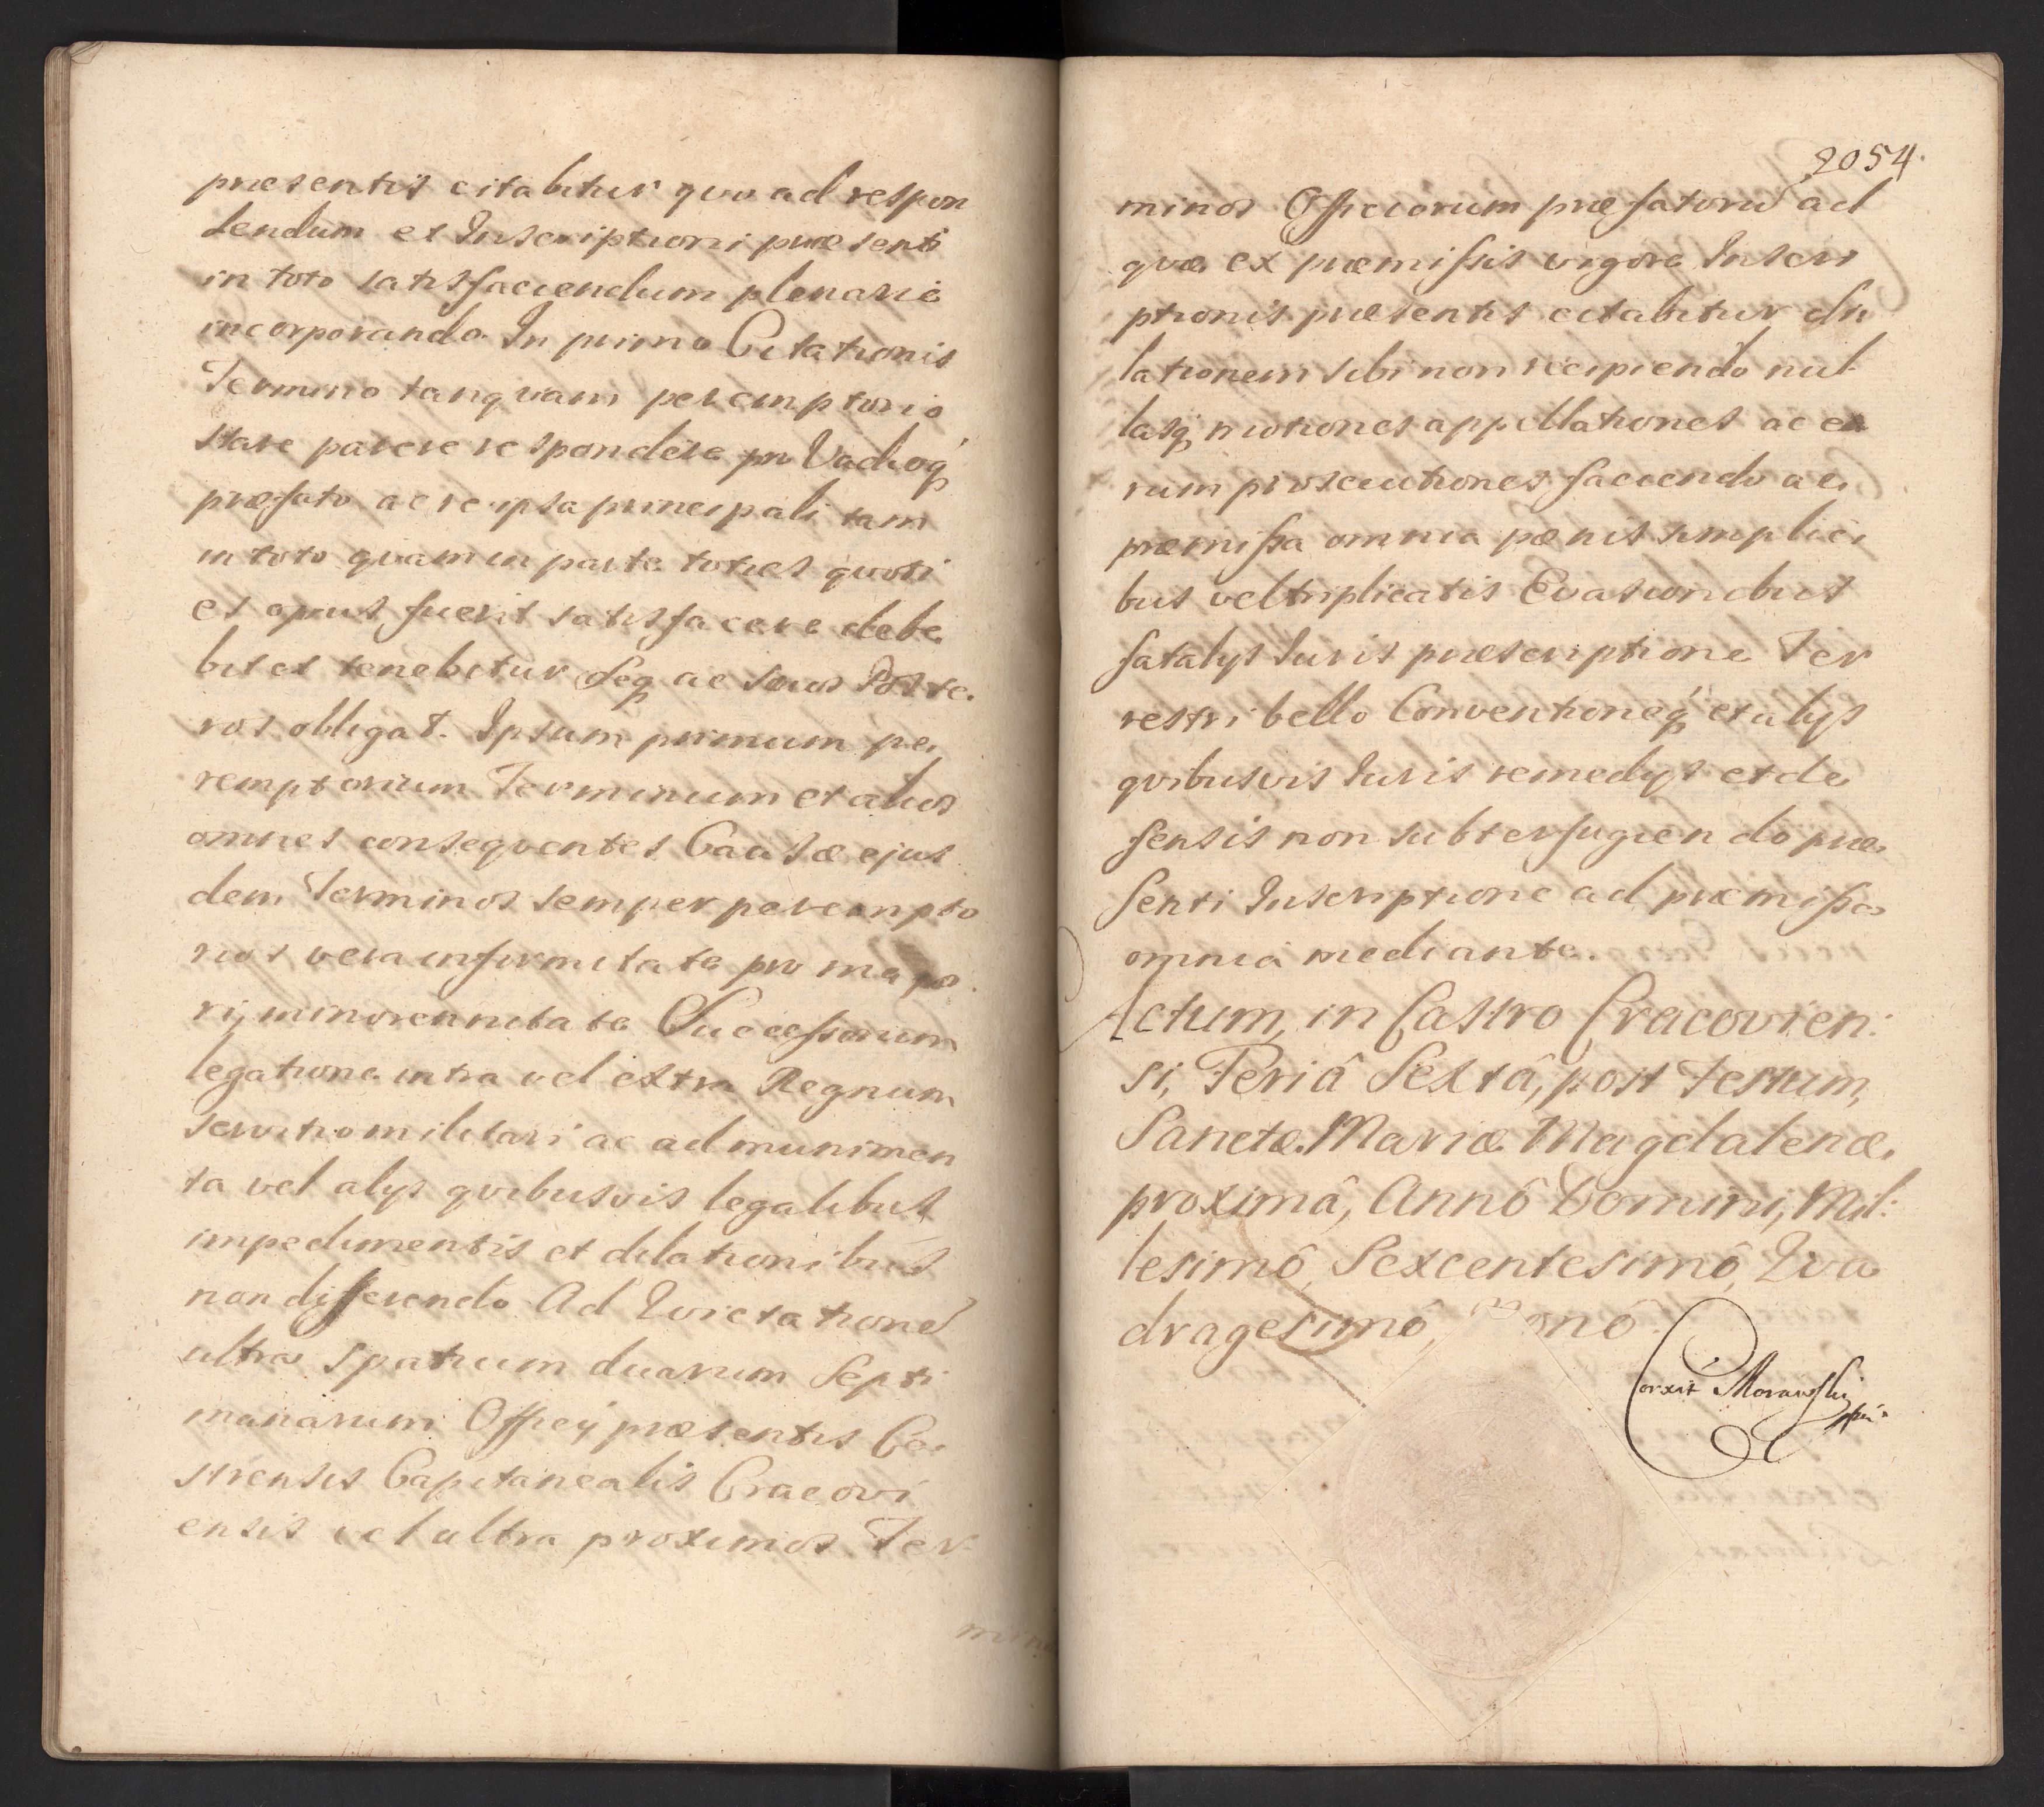 præsentis citabitur quo ad respon
dendum et Inscriptioni præsenti
in toto satisfaciendum plenarie
incorporando. In primo Citationis
Termino tanquam peremptorio
stare parere respondere pro Vadioq́
præfato ac re ipsa principali tam
in toto quam in parte toties quoti
es opus fuerit satisfacere debe
bit et tenebitur Seq ac suos Poste
ros obligat. Ipsum primum pe
remptorium Terminum et alios
omnes consequentes Causæ ejus
dem Terminos semper perempto
rios vera infirmitate pro majo
ri, minorennitate Successorum
legatione intra vel extra Regnum
servitio militari ac ad munimen
ta vel alys quibusvis legalibus
impedimentis et dilationibus
non differendo Ad Quietationē
ultra spatium duarum Septi
manarum Officy præsentis Ca
strensis Capitanealis Cracovi
ensis vel ultra proximos Ter
mino
2054.
minos Officiorum præfatorū ad
quæ ex præmissis vigore Inscri
ptionis præsentis citabitur di
lationem sibi non recipiendo nul
lasq́ motiones appellationes ac ea
rum prosecutiones faciendo ac
præmissa omnia pænis simplici
bus vel triplicatis Evasionibus
fatalys Iuris præscriptione Ter
restri bello Conventioneq́ et alys
quibusvis Iuris remedys et de
fensis non subterfugiendo præ
senti Inscriptione ad præmissa
omnia mediante.
Actum, in Castro Cracovien:
si, Feriâ Sextâ, post Festum,
Sanctæ Mariæ Magdalenæ,
proximâ, Annô Domini, Mil:
lesimô, Sexcentesimô, Qva
dragesimô, onô
Corxit Morawski
mpia